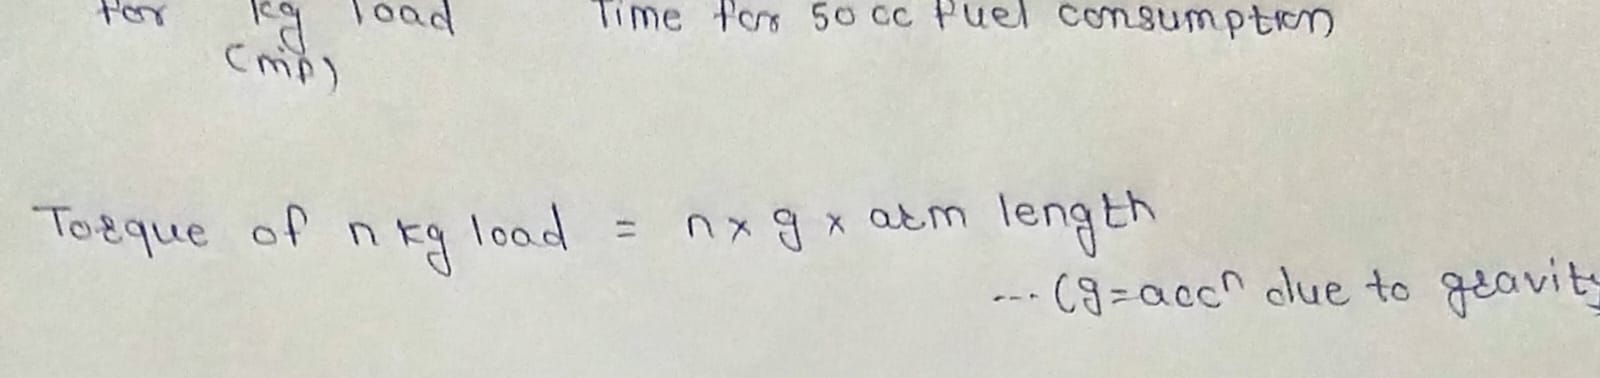 for kg load Time for 50 cc fuel consumption
(mp)
Torque of n kg load = n x g x arm length
--- (g = accⁿ due to gravity